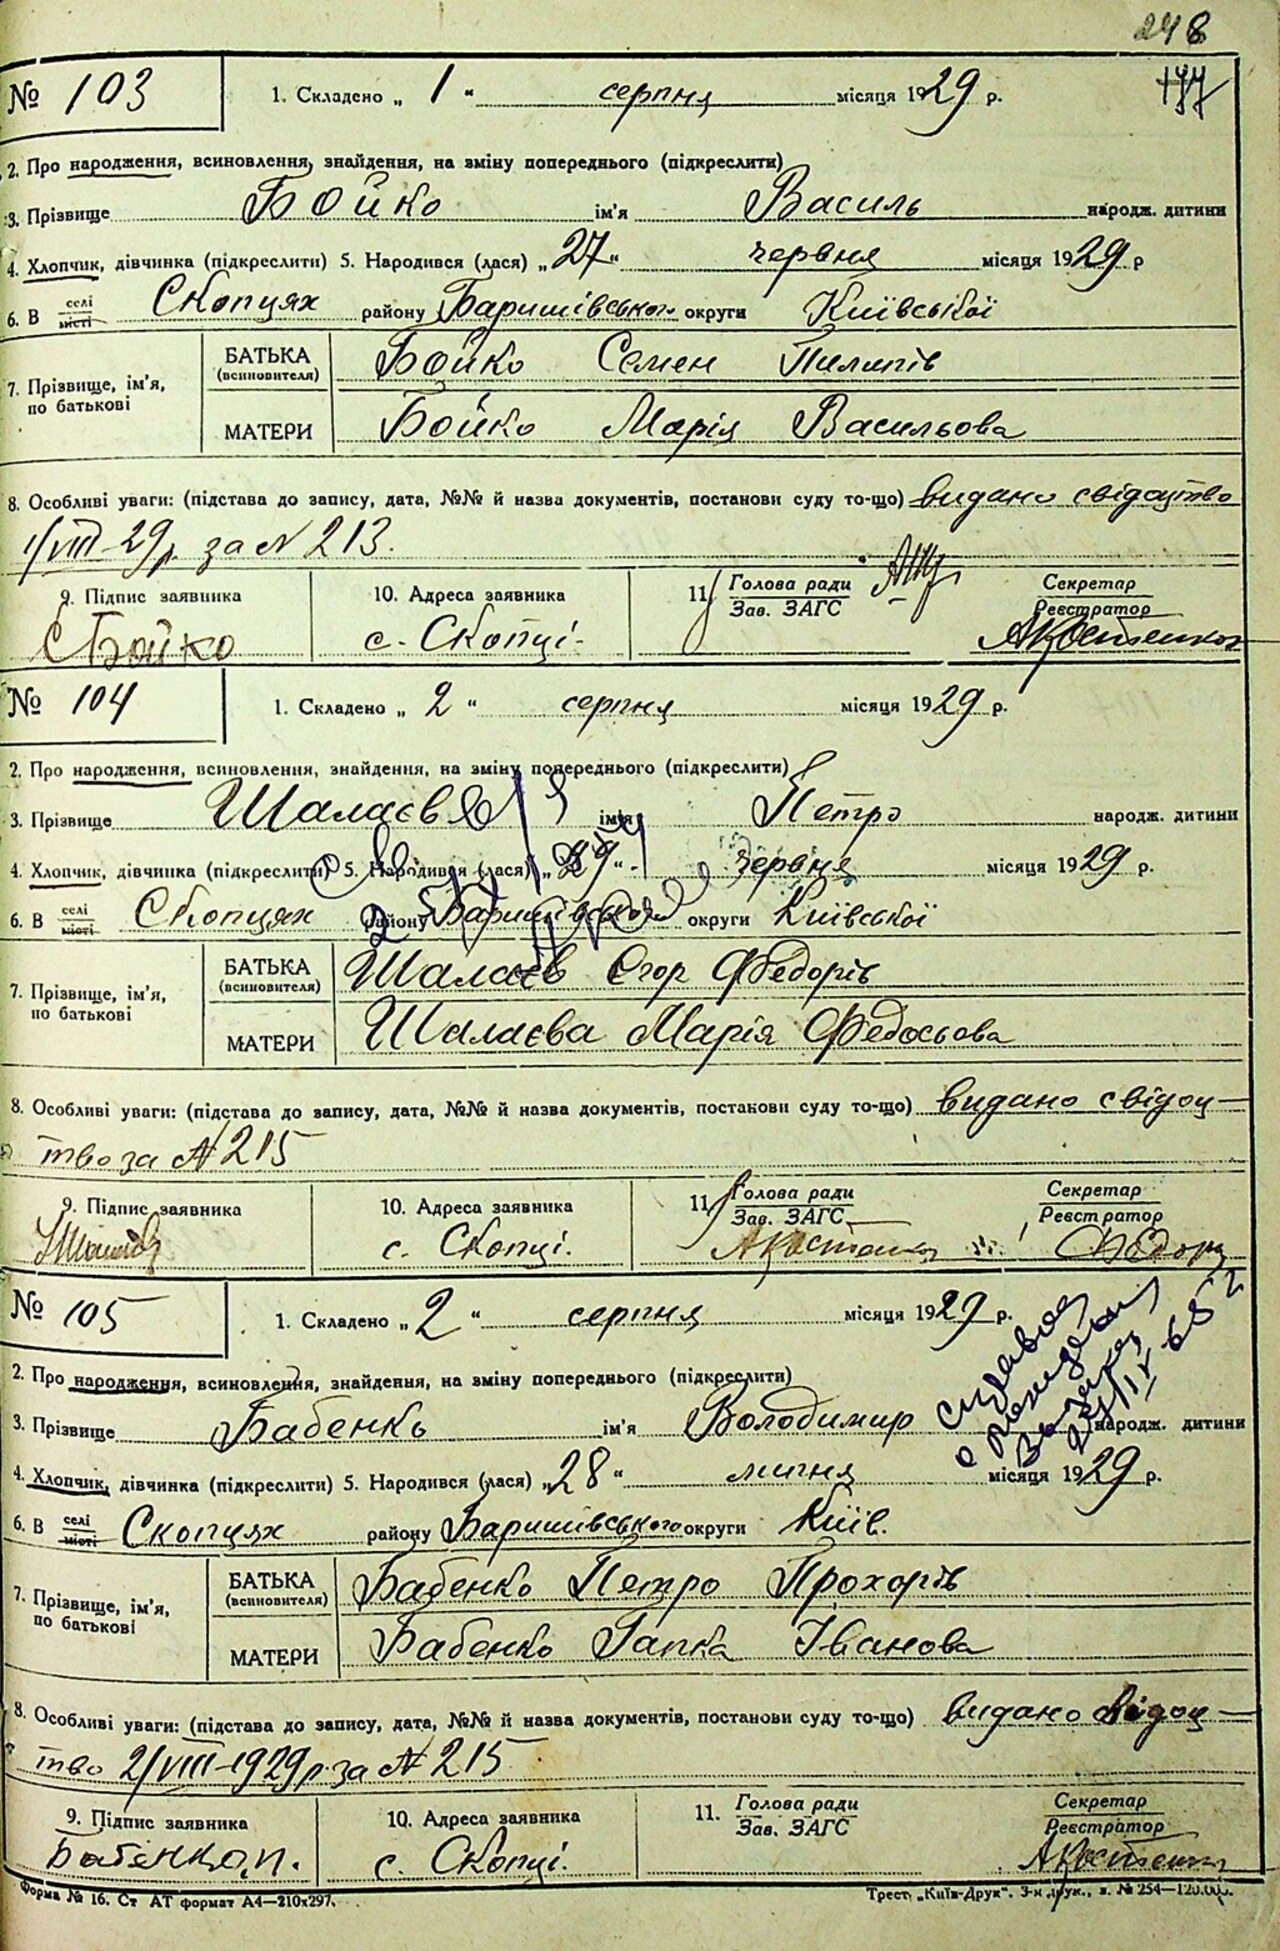 248
177
№ 103 1. Складено „ 1 " серпня місяця 1929 р.
2. Про народження, всиновлення, знайдення, на зміну попереднього (підкреслити)
3. Прізвище Бойко ім'я Василь народж. дитини
4. Хлопчик, дівчинка (підкреслити) 5. Народився (лася) „ 27 " червня місяця 1929 р
6. В селі місті Скопцях району Баришівського округи Київської
7. Прізвище, ім'я, по батькові
БАТЬКА (всиновителя) Бойко Семен Пилипів
МАТЕРИ Бойко Марія Васильова
8. Особливі уваги: (підстава до запису, дата, №№ й назва документів, постанови суду то-що) видано свідоцтво
1/VIII-29р. за N 213.
9. Підпис заявника 10. Адреса заявника 11. Голова ради Зав. ЗАГС Секретар Реєстратор
С Бойко с. Скопці. АКостенко
№ 104 1. Складено „ 2 " серпня місяця 1929 р.
2. Про народження, всиновлення, знайдення, на зміну попереднього (підкреслити)
3. Прізвище Шалаєв ім'я Петро народж. дитини
4. Хлопчик, дівчинка (підкреслити) 5. Народився (лася) „ 29 " червня місяця 1929 р.
6. В селі місті Скопцях району Баришівської округи Київської
7. Прізвище, ім'я, по батькові
БАТЬКА (всиновителя) Шалаєв Єгор Федорів
МАТЕРИ Шалаєва Марія Федосьова
8. Особливі уваги: (підстава до запису, дата, №№ й назва документів, постанови суду то-що) видано свідоц-
тво за N 215
9. Підпис заявника 10. Адреса заявника 11. Голова ради Зав. ЗАГС Секретар Реєстратор
с. Скопці. АКостенко
№ 105 1. Складено „ 2 " серпня місяця 1929 р.
2. Про народження, всиновлення, знайдення, на зміну попереднього (підкреслити)
3. Прізвище Бабенко ім'я Володимир народж. дитини
4. Хлопчик, дівчинка (підкреслити) 5. Народився (лася) „ 28 " липня місяця 1929 р.
6. В селі місті Скопцях району Баришівського округи Київ.
7. Прізвище, ім'я, по батькові
БАТЬКА (всиновителя) Бабенко Петро Прохорів
МАТЕРИ Бабенко Гапка Іванова
8. Особливі уваги: (підстава до запису, дата, №№ й назва документів, постанови суду то-що) видано свідоц-
тво 2/VIII-1929р. за N 215
9. Підпис заявника 10. Адреса заявника 11. Голова ради Зав. ЗАГС Секретар Реєстратор
Бабенко.п. с. Скопці. АКостенко
Форма № 16. Ст АТ формат А4—210x297. Трест „Київ-Друк".